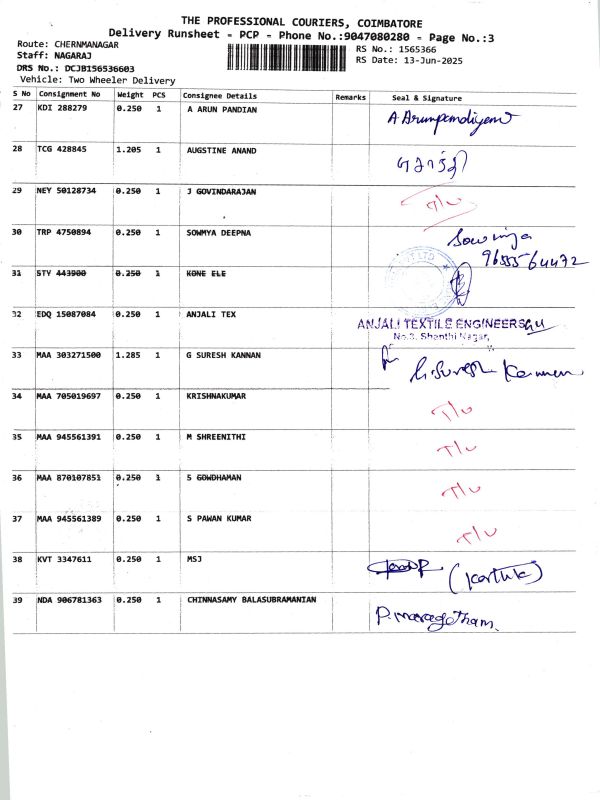 THE PROFESSIONAL COURIERS, COIMBATORE
Delivery Runsheet - PCP - Phone No.:9047080280 - Page No.:3
Route: CHERNMANAGAR
RS No.: 1565366
Staff: NAGARAJ
RS Date: 13-Jun-2025
DRS No.: DCJB156536603
Vehicle: Two Wheeler Delivery
S No Consignment No Weight PCS Consignee Details Remarks Seal & Signature
27 KDI 288279 0.250 1 A ARUN PANDIAN A Arunpandiyan
28 TCG 428845 1.205 1 AUGSTINE ANAND
29 NEY 50128734 0.250 1 J GOVINDARAJAN T/U
30 TRP 4750894 0.250 1 SOWMYA DEEPNA Sowmiya
9655564472
31 STV 443900 0.250 1 KONE ELE
32 EDQ 15087084 0.250 1 ANJALI TEX ANJALI TEXTILE ENGINEERS
No.3, Shanthi Nagar,
33 MAA 303271500 1.285 1 G SURESH KANNAN G.Suresh Kannan
34 MAA 705019697 0.250 1 KRISHNAKUMAR T/U
35 MAA 945561391 0.250 1 M SHREENITHI T/U
36 MAA 870107851 0.250 1 S GOWDHAMAN T/U
37 MAA 945561389 0.250 1 S PAWAN KUMAR T/U
38 KVT 3347611 0.250 1 MSJ (Karthik)
39 NDA 906781363 0.250 1 CHINNASAMY BALASUBRAMANIAN P. maragatham.